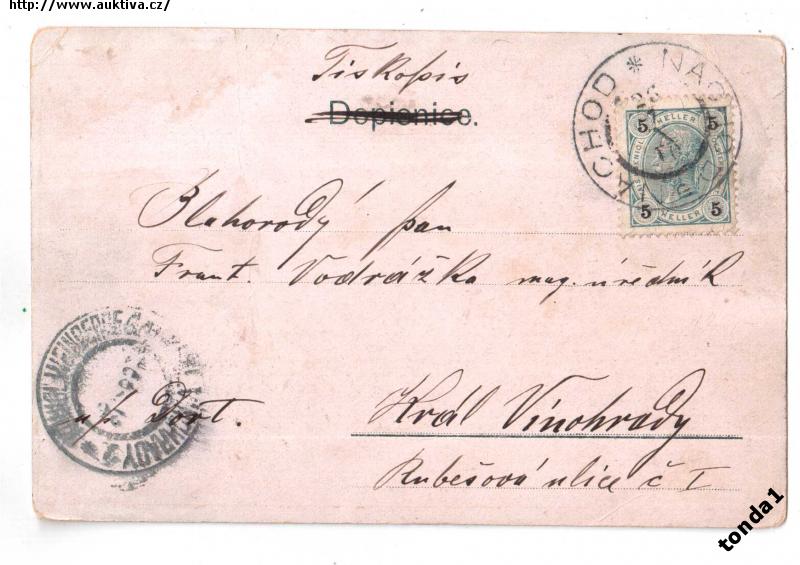 http://www.auktiva.cz/
Tiskopis
Dopisnice.
NACHOD * NÁCHOD
5 HELLER 5
5 HELLER 5
Blahorodý pan
Frant. Vodrážka mag. úředník
Král Vinohrady
Rubešová ulice č I
tonda1